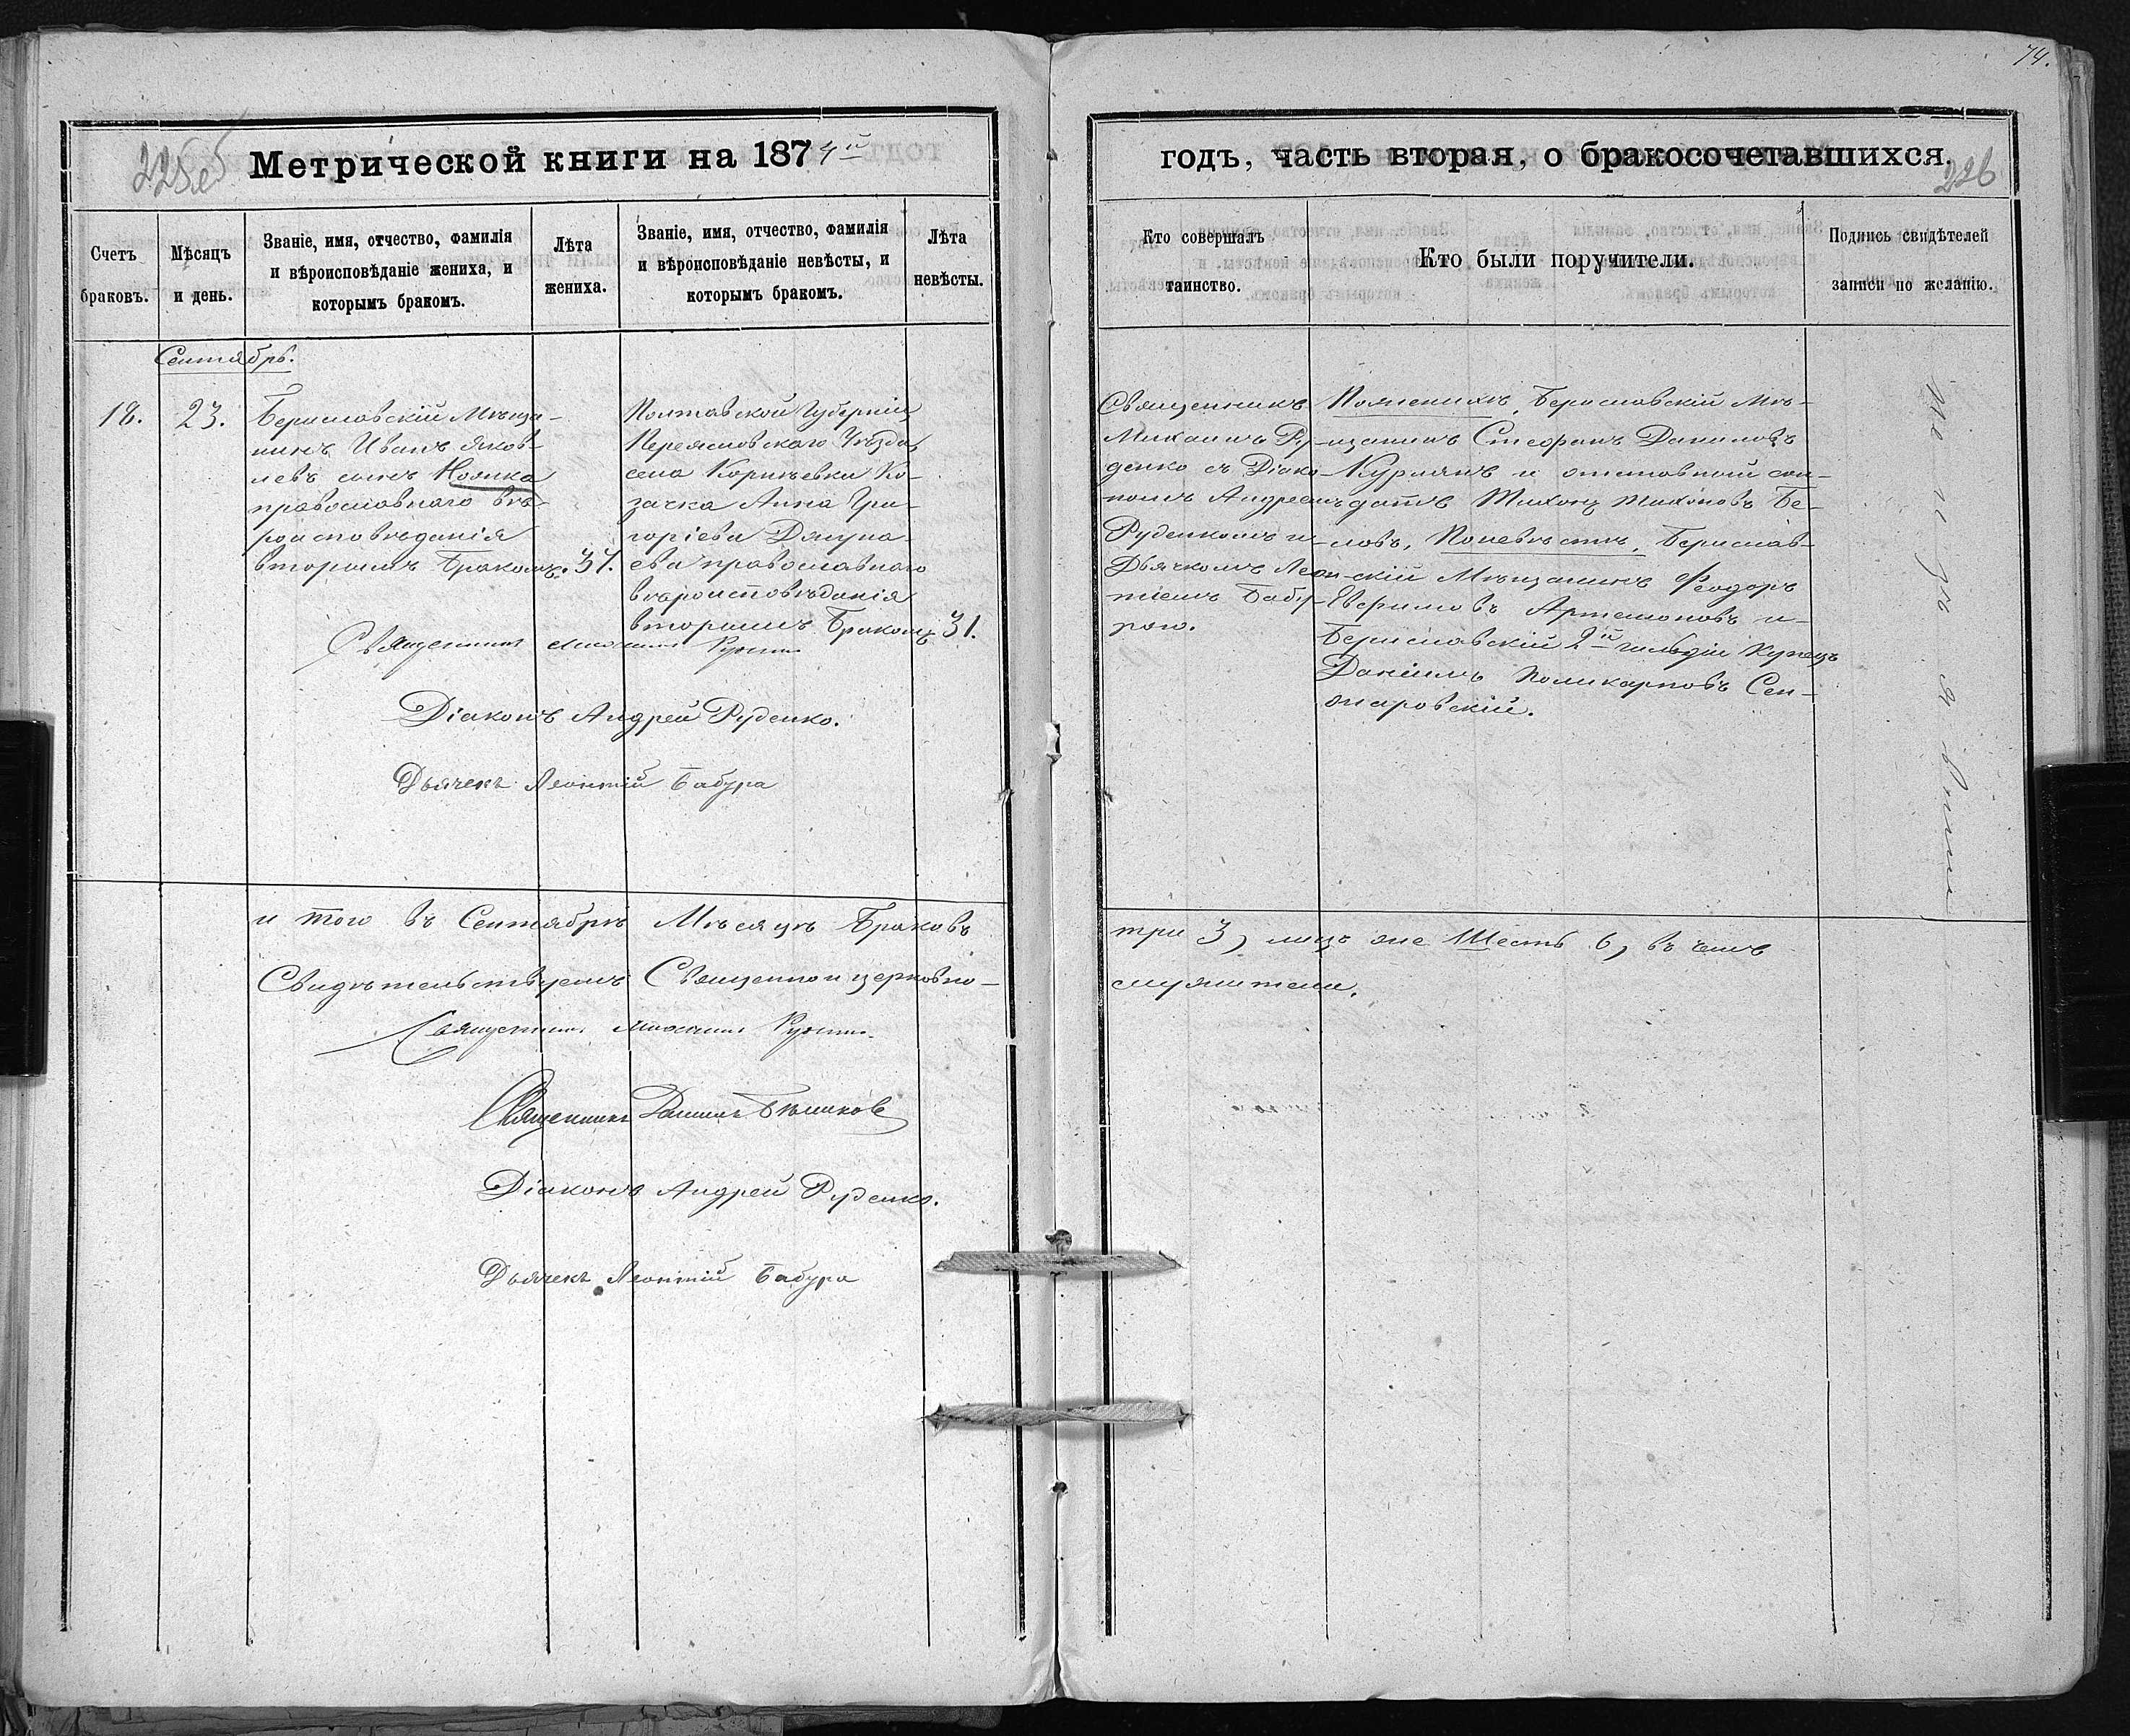 74.
225об
Метрической книги на 1874й
годъ, часть вторая, о бракосочетавшихся.
226
Счетъ браковъ.
Мѣсяцъ и день.
Званіе, имя, отчество, фамилія
и вѣроисповѣданіе жениха, и
которымъ бракомъ.
Лѣта
жениха.
Званіе, имя, отчество, фамилія
и вѣроисповѣданіе невѣсты, и
которымъ бракомъ.
Лѣта
невѣсты.
Кто совершалъ
таинство.
Кто были поручители.
Подпись свидѣтелей
записи по желанію.
Сентябрь.
18.
23.
Бериславскій Мѣща-
нинъ Иванъ Яков-
левъ сынъ
православнаго вѣ-
роисповѣданія
вторымъ Бракомъ.
37.
Полтавской Губерніи
Переясловскаго Уѣзда
села Ко-
зачка Анна Гри-
горіева
ева православнаго
вѣроисповѣданія
вторымъ Бракомъ
31.
Священникъ Михаилъ Руденко
Діаконъ Андрей Руденко.
Дьячекъ Леонтій Бабура
Священникъ
Михаилъ Ру-
денко съ Діако-
номъ Андреемъ
Руденкомъ и
Дьячкомъ Леон-
тіемъ Бабу-
рою.
По женихѣ, Бериславскій Мѣ-
щанинъ Стефанъ Даниловъ
и отставной сол-
датъ Тихонъ Тихоновъ Бе-
ловъ, По невѣстѣ, Берислав-
скій Мѣщанинъ Феодоръ
Евфимовъ Артемоновъ и
Бериславскій 2й гильдіи Купецъ
Даніилъ Поликарповъ Сен-
аторовскій.
и того въ Сентябрѣ Мѣсяцѣ Браковъ
три 3, лицъ же Шесть 6, въ чемъ
Свидѣтельствуемъ Священно и церковно-
служители.
Священникъ Михаилъ Руденко
Священникъ Даніилъ
Діаконъ Андрей Руденко.
Дьячекъ Леонтій Бабура